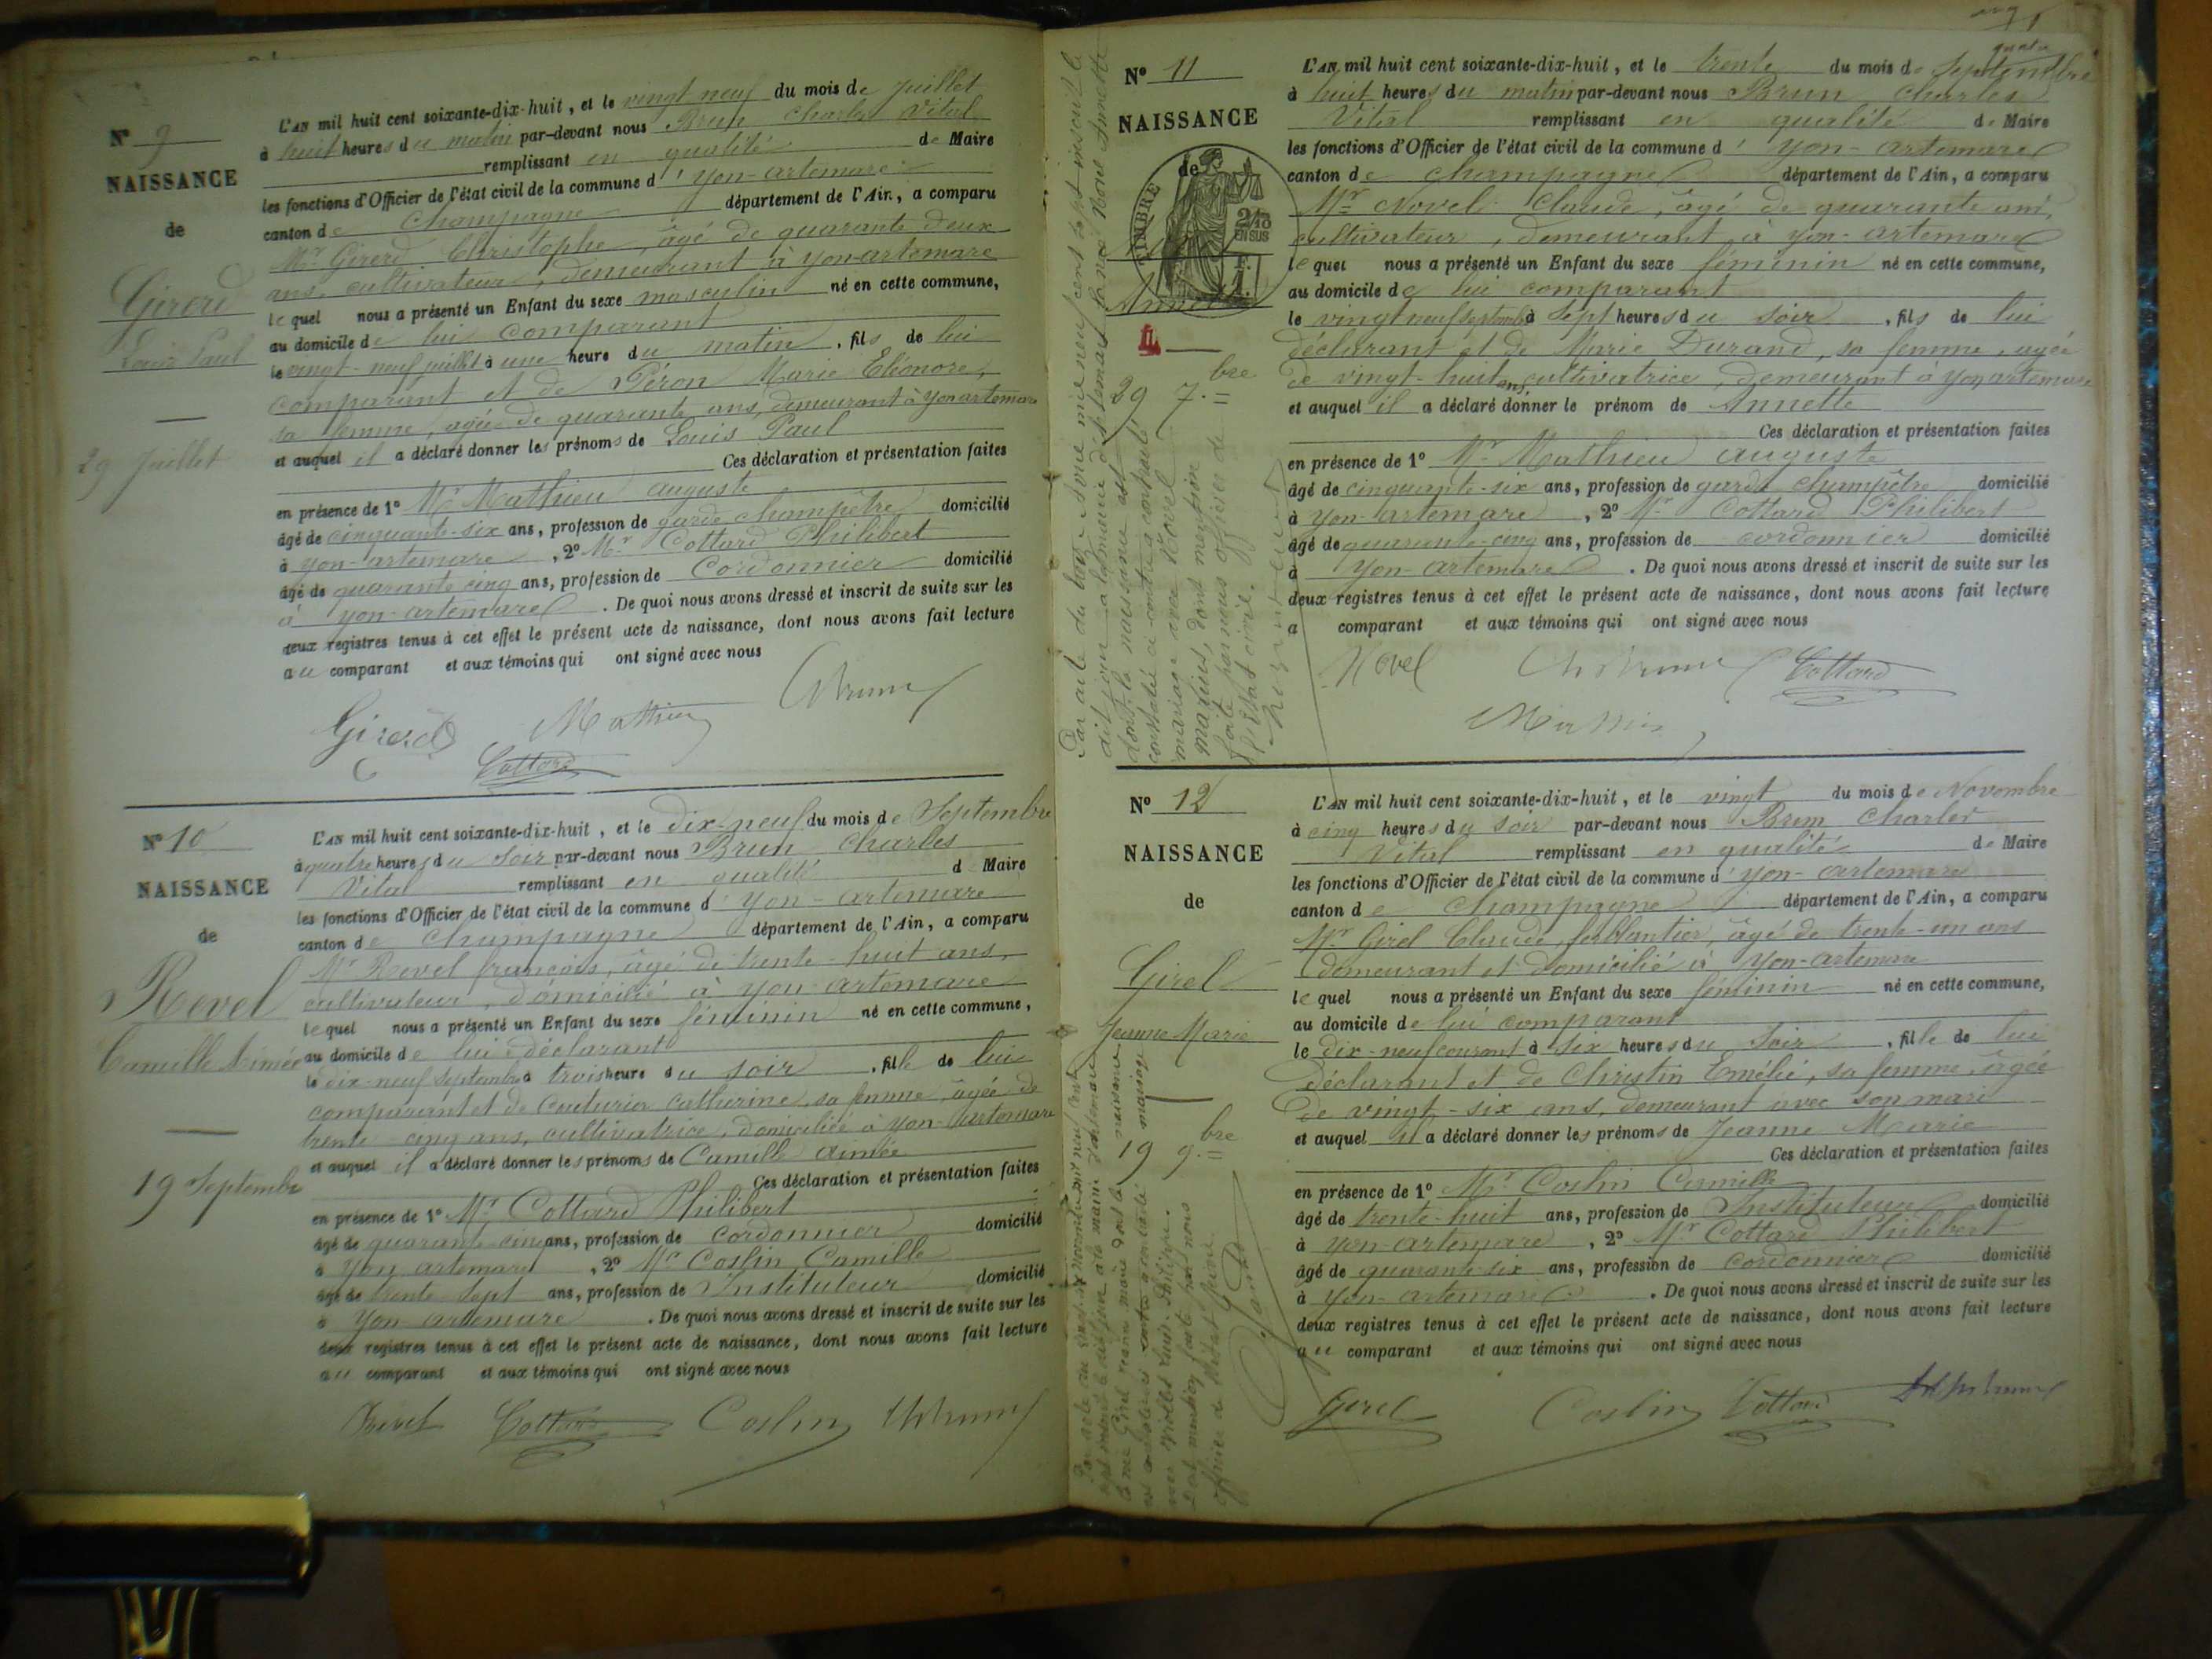 N° 9
NAISSANCE
de
Girerd
Louis Paul
29 Juillet
L'AN mil huit cent soixante-dix-huit, et le vingt neuf du mois de juillet
à huit heures du matin par-devant nous Brun Charles Vital
remplissant en qualité de Maire
les fonctions d'Officier de l'état civil de la commune d' yon-artemare
canton de Champagne département de l'Ain, a comparu
Mr Girerd Christophe, âgé de quarante deux
ans, cultivateur, demeurant à yon-artemare
lequel nous a présenté un Enfant du sexe masculin né en cette commune,
au domicile de lui comparant
le vingt-neuf juillet à une heure du matin, fils de lui
comparant et de Péron Marie Eléonore,
sa femme, agée de quarante ans, demeurant à yon artemare
et auquel il a déclaré donner les prénoms de Louis Paul
Ces déclaration et présentation faites
en présence de 1° Mr Mathieu auguste
âgé de cinquante-six ans, profession de garde champêtre domicilié
à yon-artemare, 2° Mr Cottard Philibert
âgé de quarante cinq ans, profession de Cordonnier domicilié
à yon-artemare. De quoi nous avons dressé et inscrit de suite sur les
deux registres tenus à cet effet le présent acte de naissance, dont nous avons fait lecture
au comparant et aux témoins qui ont signé avec nous
Girerd Mathieu
Cottard
N° 10
NAISSANCE
de
Revel
Camille Aimée
19 Septembre
L'AN mil huit cent soixante-dix-huit, et le dix-neuf du mois de Septembre
à quatre heures du soir par-devant nous Brun Charles
Vital remplissant en qualité d Maire
les fonctions d'Officier de l'état civil de la commune d yon-artemare
canton de Champagne département de l'Ain, a comparu
Mr Revel françois, âgé de trente-huit ans,
cultivateur, domicilié à yon artemare
lequel nous a présenté un Enfant du sexe féminin né en cette commune,
au domicile de lui déclarant
le dix-neuf Septembre à trois heure du soir, fille de lui
comparant et de Couturier Catherine, sa femme, agée de
trente-cinq ans, cultivatrice, domiciliée à yon-artemare
et auquel il a déclaré donner les prénoms de Camille aimée
Ces déclaration et présentation faites
en présence de 1° Mr Cottard Philibert
âgé de quarante cinq ans, profession de cordonnier domicilié
à yon artemare, 2° Mr Coslin Camille
âgé de trente sept ans, profession de Instituteur domicilié
à yon artemare. De quoi nous avons dressé et inscrit de suite sur les
deux registres tenus à cet effet le présent acte de naissance, dont nous avons fait lecture
au comparant et aux témoins qui ont signé avec nous
Revel Cottard Coslin
N° 11
NAISSANCE
de
TIMBRE
2/10
EN SUS
F.
1.
29 7.bre
L'AN mil huit cent soixante-dix-huit, et le trente du mois de Septembre
à huit heures du matin par-devant nous Brun Charles
Vital remplissant en qualité de Maire
les fonctions d'Officier de l'état civil de la commune d' yon-artemare
canton de champagne département de l'Ain, a comparu
Mr Novel Claude, âgé de quarante ans,
cultivateur, demeurant à yon-artemare
lequel nous a présenté un Enfant du sexe féminin né en cette commune,
au domicile de lui comparant
le vingt neuf septembre à Sept heures du soir, fils de lui
déclarant et de Marie Durand, sa femme, agée
de vingt-huit ans, cultivatrice, demeurant à yon artemare
et auquel il a déclaré donner le prénom de Annette
Ces déclaration et présentation faites
en présence de 1° Mr Mathieu auguste
âgé de cinquante-six ans, profession de garde champêtre domicilié
à yon-artemare, 2° Mr Cottard Philibert
âgé de quarante-cinq ans, profession de cordonnier domicilié
à yon-artemare. De quoi nous avons dressé et inscrit de suite sur les
deux registres tenus à cet effet le présent acte de naissance, dont nous avons fait lecture
a comparant et aux témoins qui ont signé avec nous
Novel Cottard
N° 12
NAISSANCE
de
Girel
Jeanne Marie
19 9.bre
L'AN mil huit cent soixante-dix-huit, et le vingt du mois de Novembre
à cinq heures du soir par-devant nous Brun Charles
Vital remplissant en qualité de Maire
les fonctions d'Officier de l'état civil de la commune d' yon-artemare
canton de Champagne département de l'Ain, a comparu
Mr Girel Claude, ferblantier, âgé de trente-un ans
demeurant et domicilié à yon-artemare
lequel nous a présenté un Enfant du sexe féminin né en cette commune,
au domicile de lui comparant
le dix-neuf courant à six heures du soir, fille de lui
déclarant et de Christin Emélie, sa femme, agée
de vingt-six ans, demeurant avec son mari
et auquel il a déclaré donner les prénoms de Jeanne Marie
Ces déclaration et présentation faites
en présence de 1° Mr Coslin Camille
âgé de trente-huit ans, profession de Instituteur domicilié
à yon-artemare, 2° Mr Cottard Philibert
âgé de quarante-six ans, profession de cordonnier domicilié
à yon-artemare. De quoi nous avons dressé et inscrit de suite sur les
deux registres tenus à cet effet le présent acte de naissance, dont nous avons fait lecture
au comparant et aux témoins qui ont signé avec nous
Girel Coslin Cottard